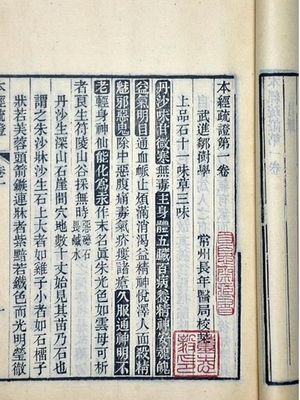 本經疏證第一卷
武進鄒澍學
常州長年醫局校
上品石十一味草三味
丹沙味甘微寒無毒主身體五臟百病養精神安魂魄
益氣明目通血脈止煩滿消渴益精神悅澤人面殺精
魅邪惡鬼除中惡腹痛毒氣疥瘻諸瘡久服通神明不
老輕身神仙能化為汞作末名眞朱光色如雲母可析
者良生符陵山谷採無時惡慈石畏鹹水
丹沙生深山石崖間穴地數十丈始見其苗乃石也
謂之朱沙牀沙生石上大者如雞子小者如石榴子
狀若芙蓉頭箭鏃連牀者紫黯若鐵色而光明瑩徹
本經疏證 卷一